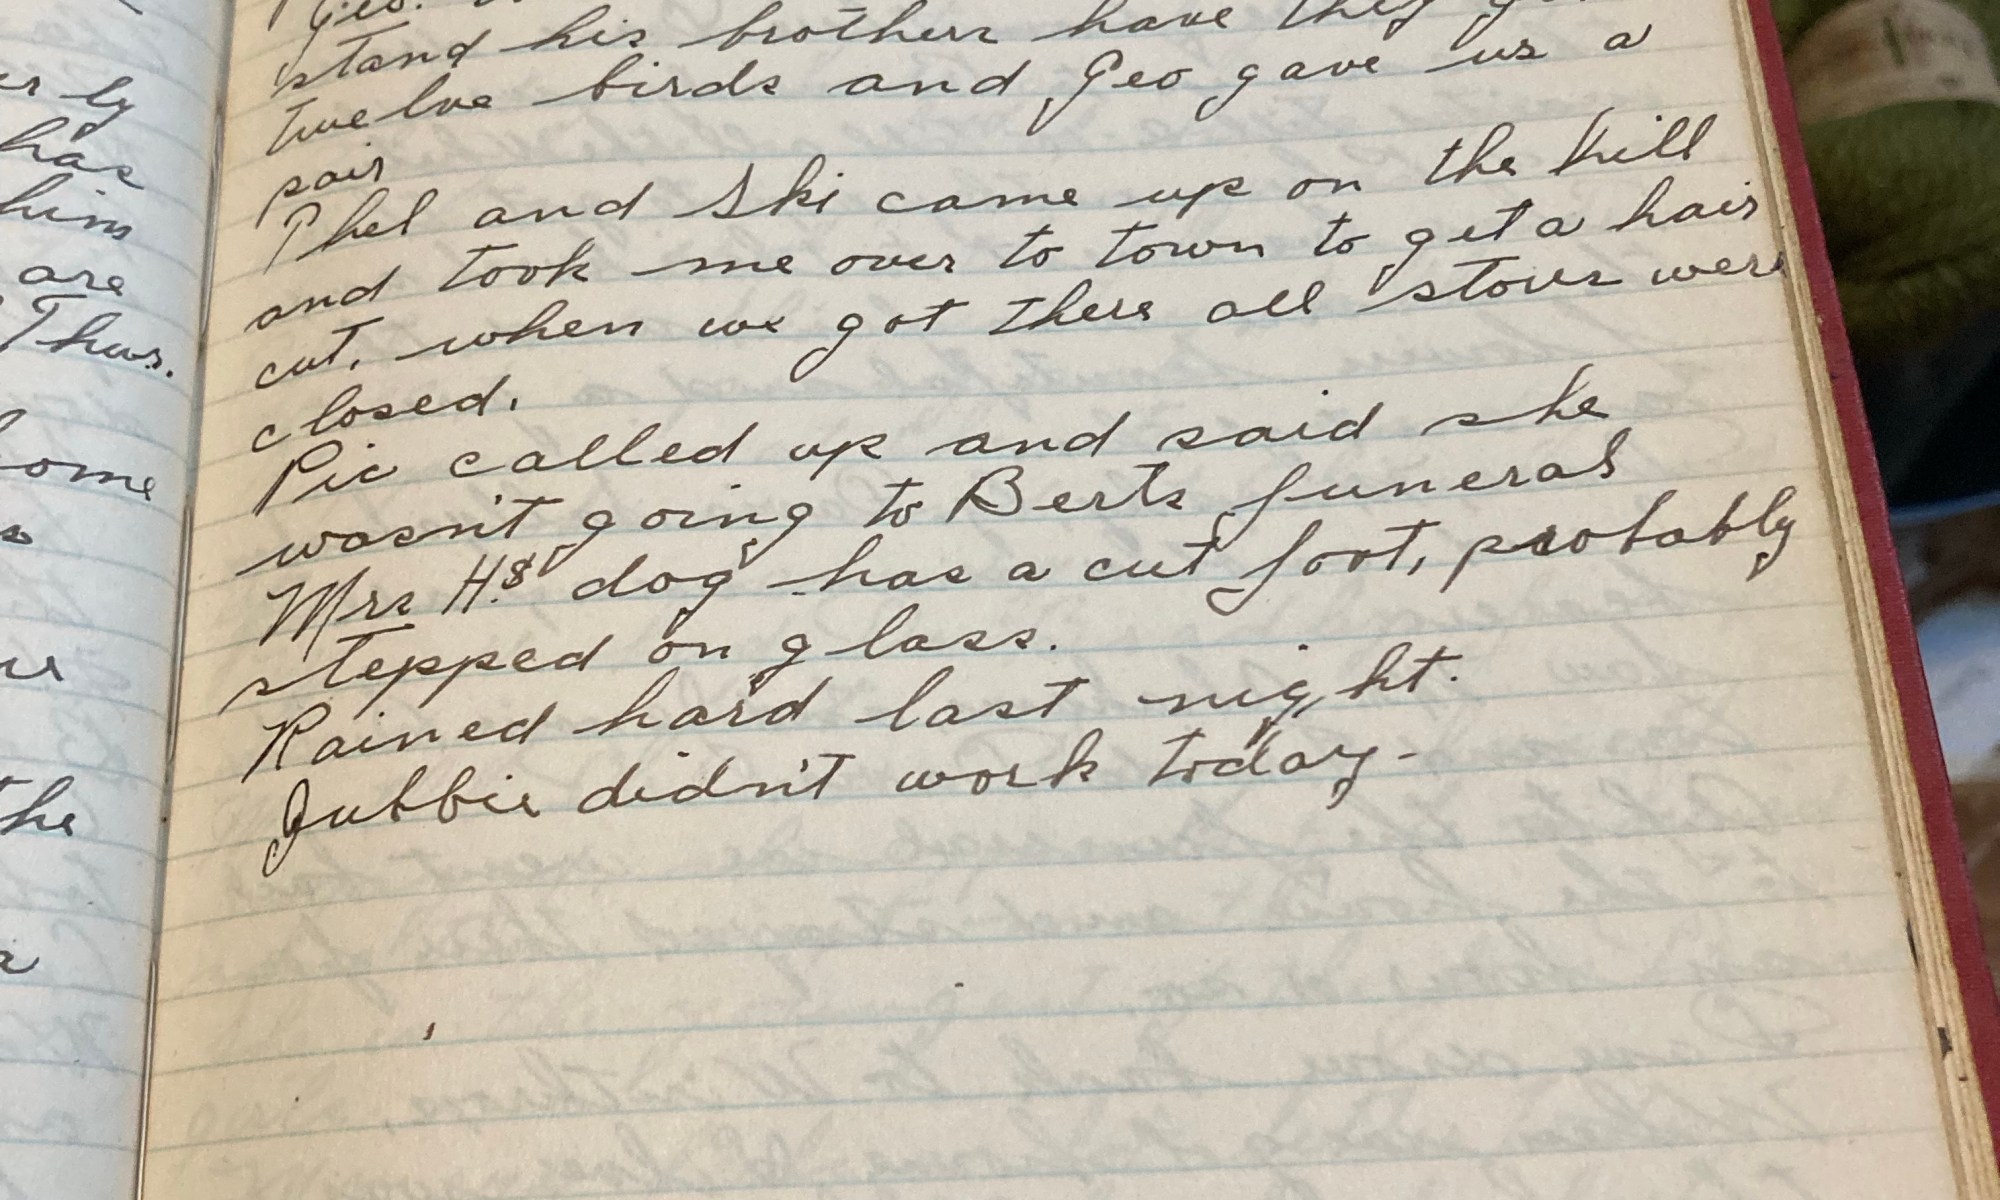 er ly
has
him
are
Thurs.
ome
the
Geo.
stand his brothers have they
twelve birds and Geo gave us a
pair
Phel and Ski came up on the hill
and took me over to town to get a hair
cut, when we got there all stores were
closed.
Pic called up and said she
wasn't going to Berts funeral
Mrs H's dog has a cut foot, probably
stepped on glass.
Rained hard last night.
Jubbie didn't work today-